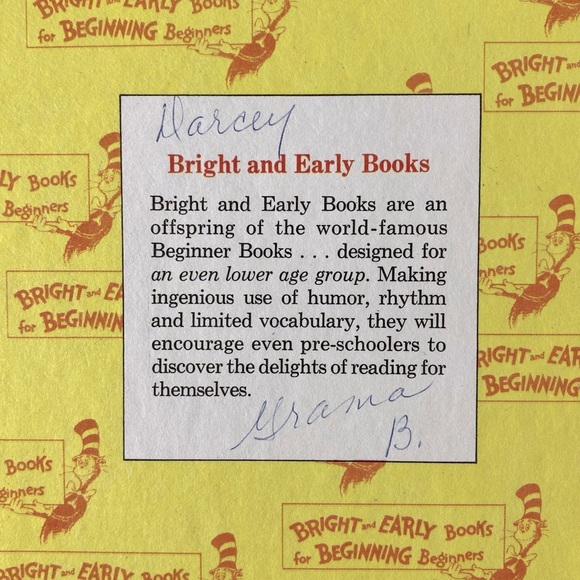 BRIGHT and EARLY BOOKS
for BEGINNING Beginners
BRIGHT and
for BEGINN
Darcey
Bright and Early Books
Bright and Early Books are an
offspring of the world-famous
Beginner Books . . . designed for
an even lower age group. Making
ingenious use of humor, rhythm
and limited vocabulary, they will
encourage even pre-schoolers to
discover the delights of reading for
themselves.
Grama
B.
LY BOOKS
Beginners
BRIGHT and EA
for BEGINNIN
BOOKS
nners
RIGHT and EAR
BEGINNING
BOOKS
ginners
BRIGHT and EARLY BOOKS
for BEGINNING Beginners
BRIGHT and EARLY BOOKS